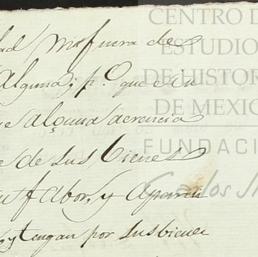 dad mefuera de
Alguna; p.º que
alguna aerencia
de sus bienes
fabor, y
y tengan por sus biener
CENTRO DE
ESTUDIO
DE HISTOR
DE MEXIC
FUNDACI
Carlos Sl